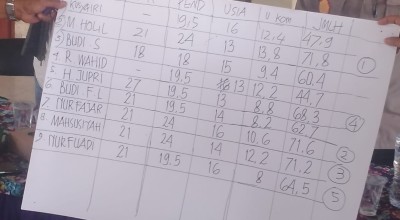 KUSAIRI - 19,5 16 12,4 47,9
PEND USIA KOM JMLH
2 M. HOLIL 21 24 13 13,8 71,8 1
3 BUDI S 18 18 15 9,4 60,4
4 R. WAHID - 19,5 13 12,2 44,7
5 H. JUPRI 27 19,5 13 8,8 68,3 4
6 BUDI F.L 21 19,5 14 8,2 62,7
7 NURFAJAR 21 24 16 10,6 71,6 2
8 MAHSUSIYAH 21 24 14 12,2 71,2 3
9 NURFUADI 21 19,5 16 8 64,5 5